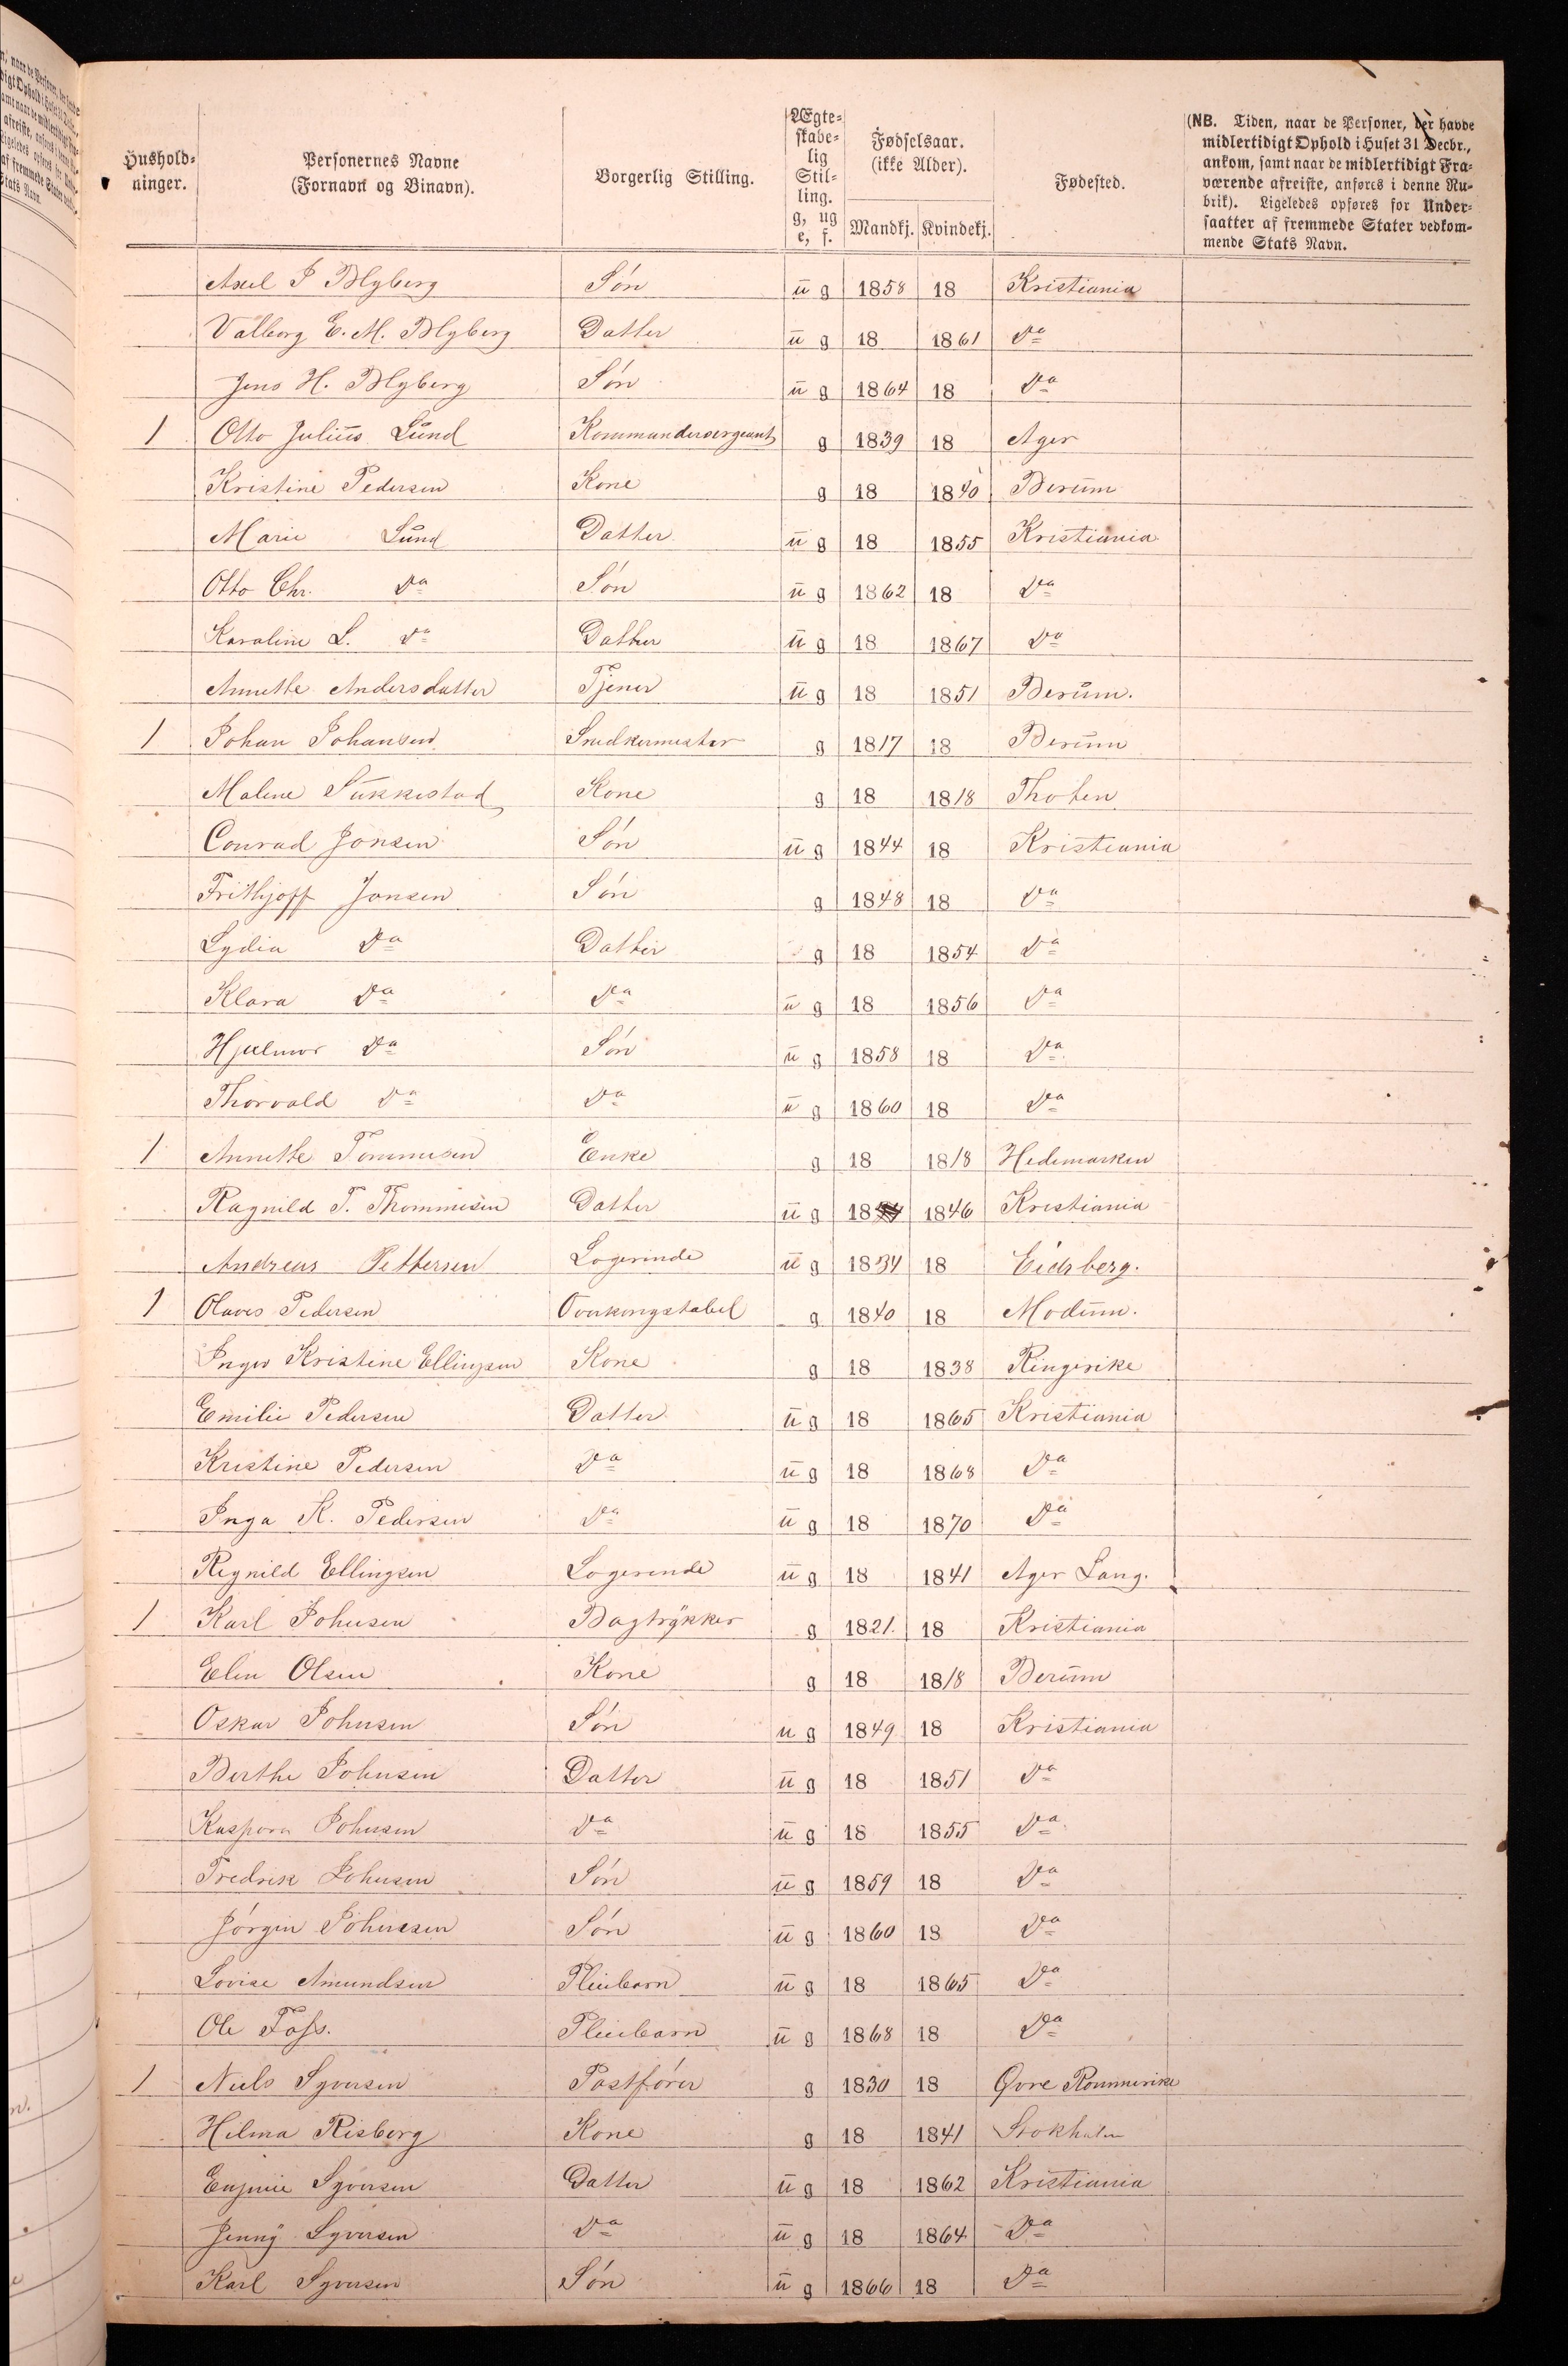 Hushold-
ninger.
Personernes Navne
(Fornavn og Binavn).
Borgerlig Stilling.
Ægte-
skabe-
lig
Stil-
ling.
g, ug
e, f.
Fødselsaar.
(ikke Alder).
Mandkj. Kvindekj.
Fødested.
(NB. Tiden, naar de Personer, der havde
midlertidigt Ophold i Huset 31 Decbr.,
ankom, samt naar de midlertidigt Fra-
værende afreiste, anføres i denne Ru-
brik). Ligeledes opføres for Under-
saatter af fremmede Stater vedkom-
mende Stats Navn.
Axel P Myberg Søn u g 1858 18 Kristiania
Valborg E. M. Myberg Datter u g 18 1861 Do
Jens H. Myberg Søn u g 1864 18 Do
1 Otto Julius Lund Kommandersergeant g 1839 18 Ager
Kristine Pedersen Kone g 18 1840 Berum
Marie Lund Datter u g 18 1855 Kristiania
Otto Chr. Do Søn u g 1862 18 Do
Karoline L. Do Datter u g 18 1867 Do
Annethe Andersdatter Tjener u g 18 1851 Berum.
1 Johan Johansen Snedkermester g 1817 18 Berum
Malene Sukkestad Kone g 18 1818 Thoten
Conrad Jonsen Søn u g 1844 18 Kristiania
Frithjoff Jonsen Søn g 1848 18 Do
Lydia Do Datter g 18 1854 Do
Klara Do Do u g 18 1856 Do
Hjalmar Do Søn u g 1858 18 Do
Thorvald Do Do u g 1860 18 Do
1 Annethe Tommesen Enke g 18 1818 Hedemarken
Ragnild T. Thommesen Datter u g 18 1846 Kristiania
Andreas Pettersen Logerende u g 1834 18 Eidsberg.
1 Olaves Pedersen Overkongstabel g 1840 18 Modum.
Inger Kristine Ellingsen Kone g 18 1838 Ringerike
Emilie Pedersen Datter u g 18 1865 Kristiania
Kristine Pedersen Do u g 18 1868 Do
Inga K. Pedersen Do u g 18 1870 Do
Regnild Ellingsen Logerende u g 18 1841 Ager Lang.
1 Karl Johnsen Bogtrykker g 1821. 18 Kristiania
Elen Olsen Kone g 18 1818 Berum
Oskar Johnsen Søn u g 1849 18 Kristiania
Berthe Johnsen Datter u g 18 1851 Do
Kaspora Johnsen Do u g 18 1855 Do
Fredrik Johnsen Søn u g 1859 18 Do
Jørgen Johnsen Søn u g 1860 18 Do
Lovise Amundsen Pleiebarn u g 18 1865 Do
Ole Foss. Pleiebarn u g 1868 18 Do
1 Niels Syversen Postfører g 1830 18 Øvre Rommerike
Hilma Risberg Kone g 18 1841 Stokholm
Eugenie Syversen Datter u g 18 1862 Kristiania
Jenny Syversen Do u g 18 1864 Do
Karl Syversen Søn u g 1866 18 Do